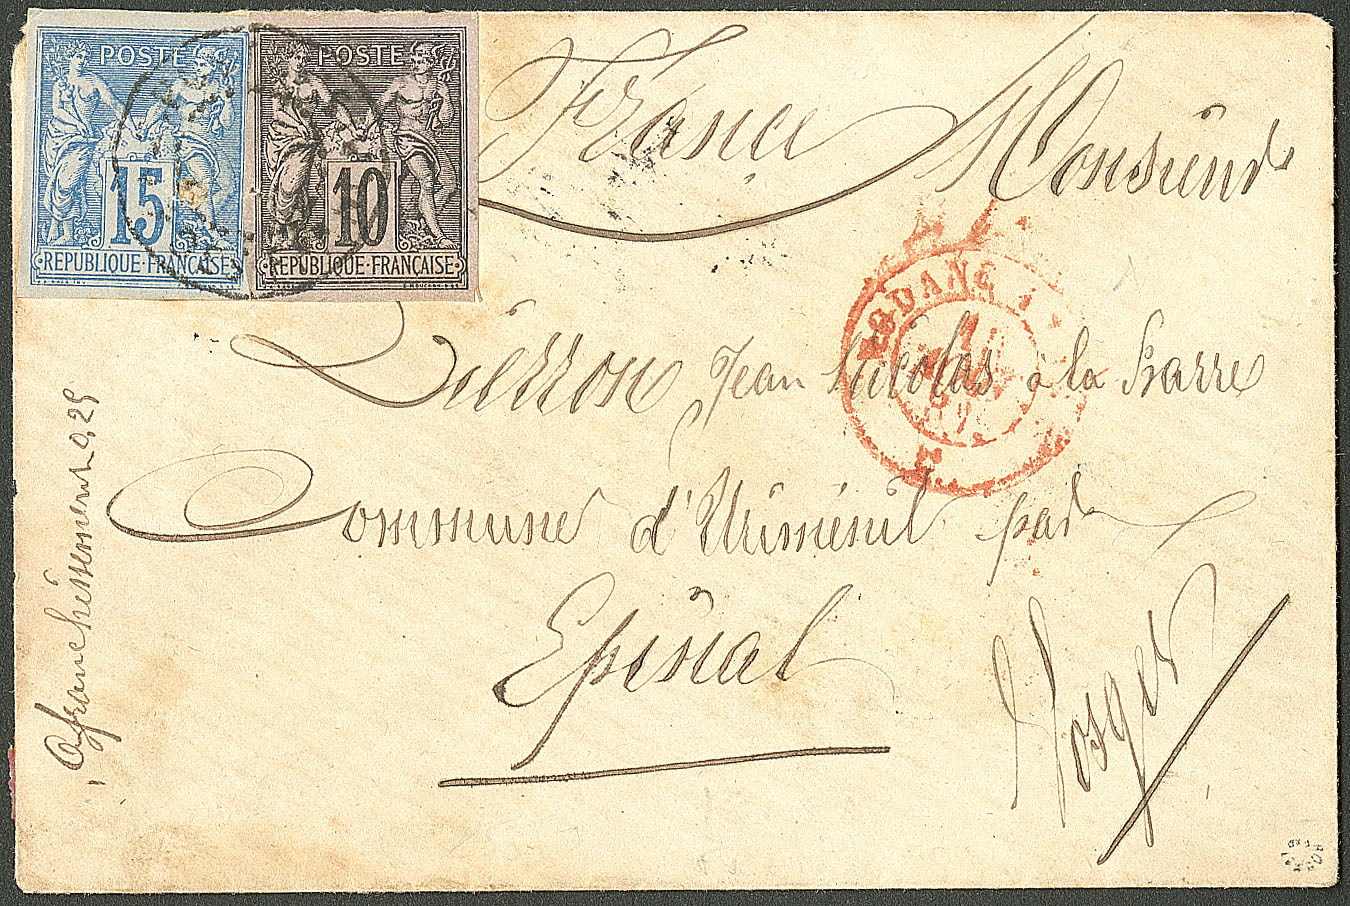 POSTE
15
REPUBLIQUE · FRANÇAISE
POSTE
10
REPUBLIQUE · FRANÇAISE
France
Monsieur
Pierron Jean Nicolas à la Barre
Commune d'Uriménil par
Epinal
Vosges
Afranchissement 0,25